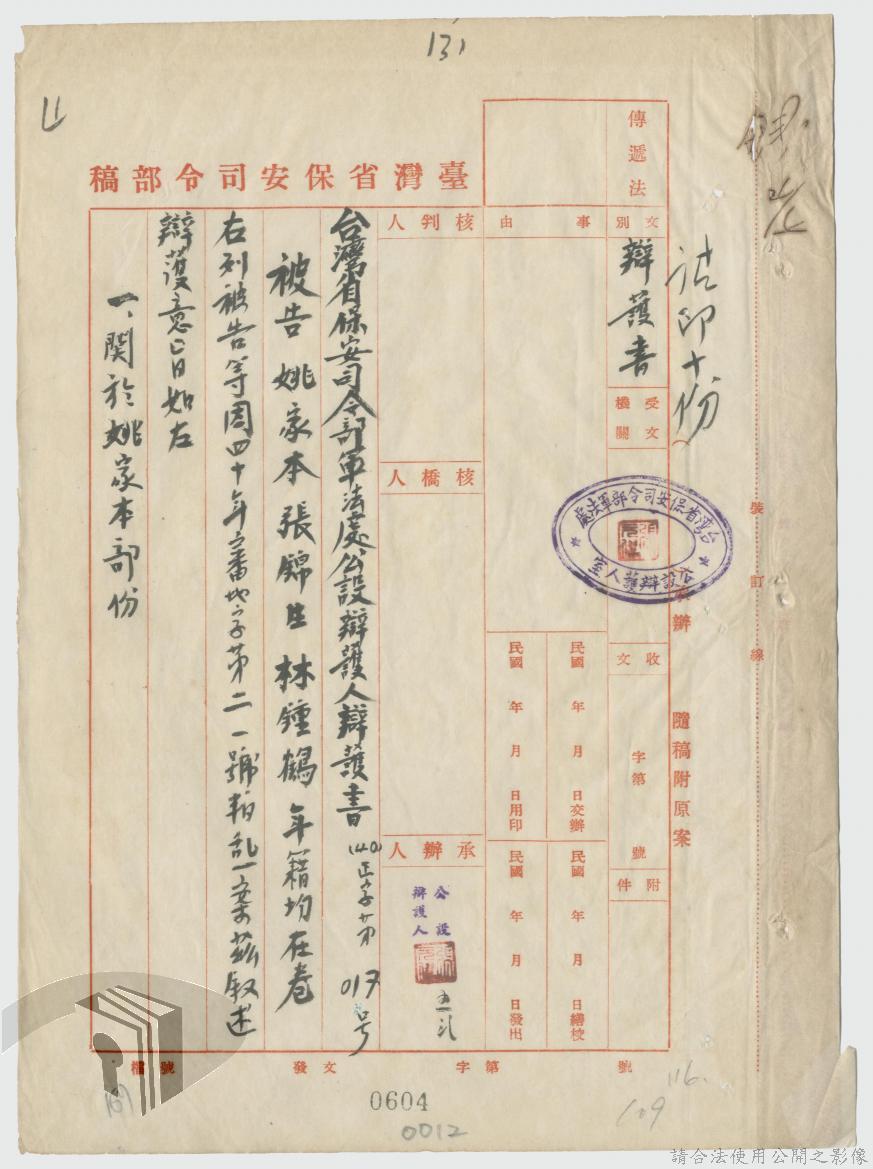 131
臺灣省保安司令部稿
傳遞法
請印十份
文別
辯護書
受文機關
事由
隨稿附原案
裝訂線
台灣省保安司令部軍法處
公設辯護人室
收文
字第
號
附件
民國 年 月 日交辦
民國 年 月 日繕校
民國 年 月 日用印
民國 年 月 日發出
核判人
核橋人
承辦人
公設辯護人
台灣省保安司令部軍法處公設辯護人辯護書 (40)正字第017号
被告 姚家本 張錦生 林鍾鶴 年籍均在卷
右列被告等因四十年安審地字第二一號叛乱一案茲叙述
辯護意旨如左
一、関於姚家本部份
檔號
發文
字第
號
0604
0012
109
116.
請合法使用公開之影像